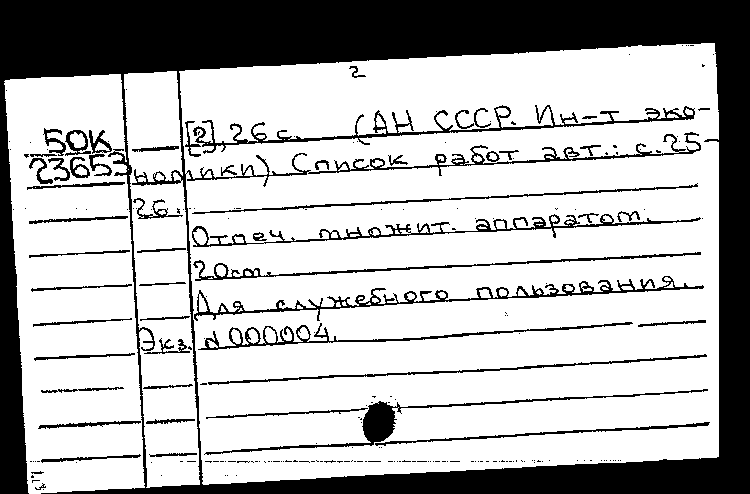 2
50К [2], 26 с. (АН СССР. Ин-т эко-
23653 номики). Список работ авт.: с.25-
26.
Отпеч. множит. аппаратом.
20см.
Для служебного пользования.
Экз. № 000004.